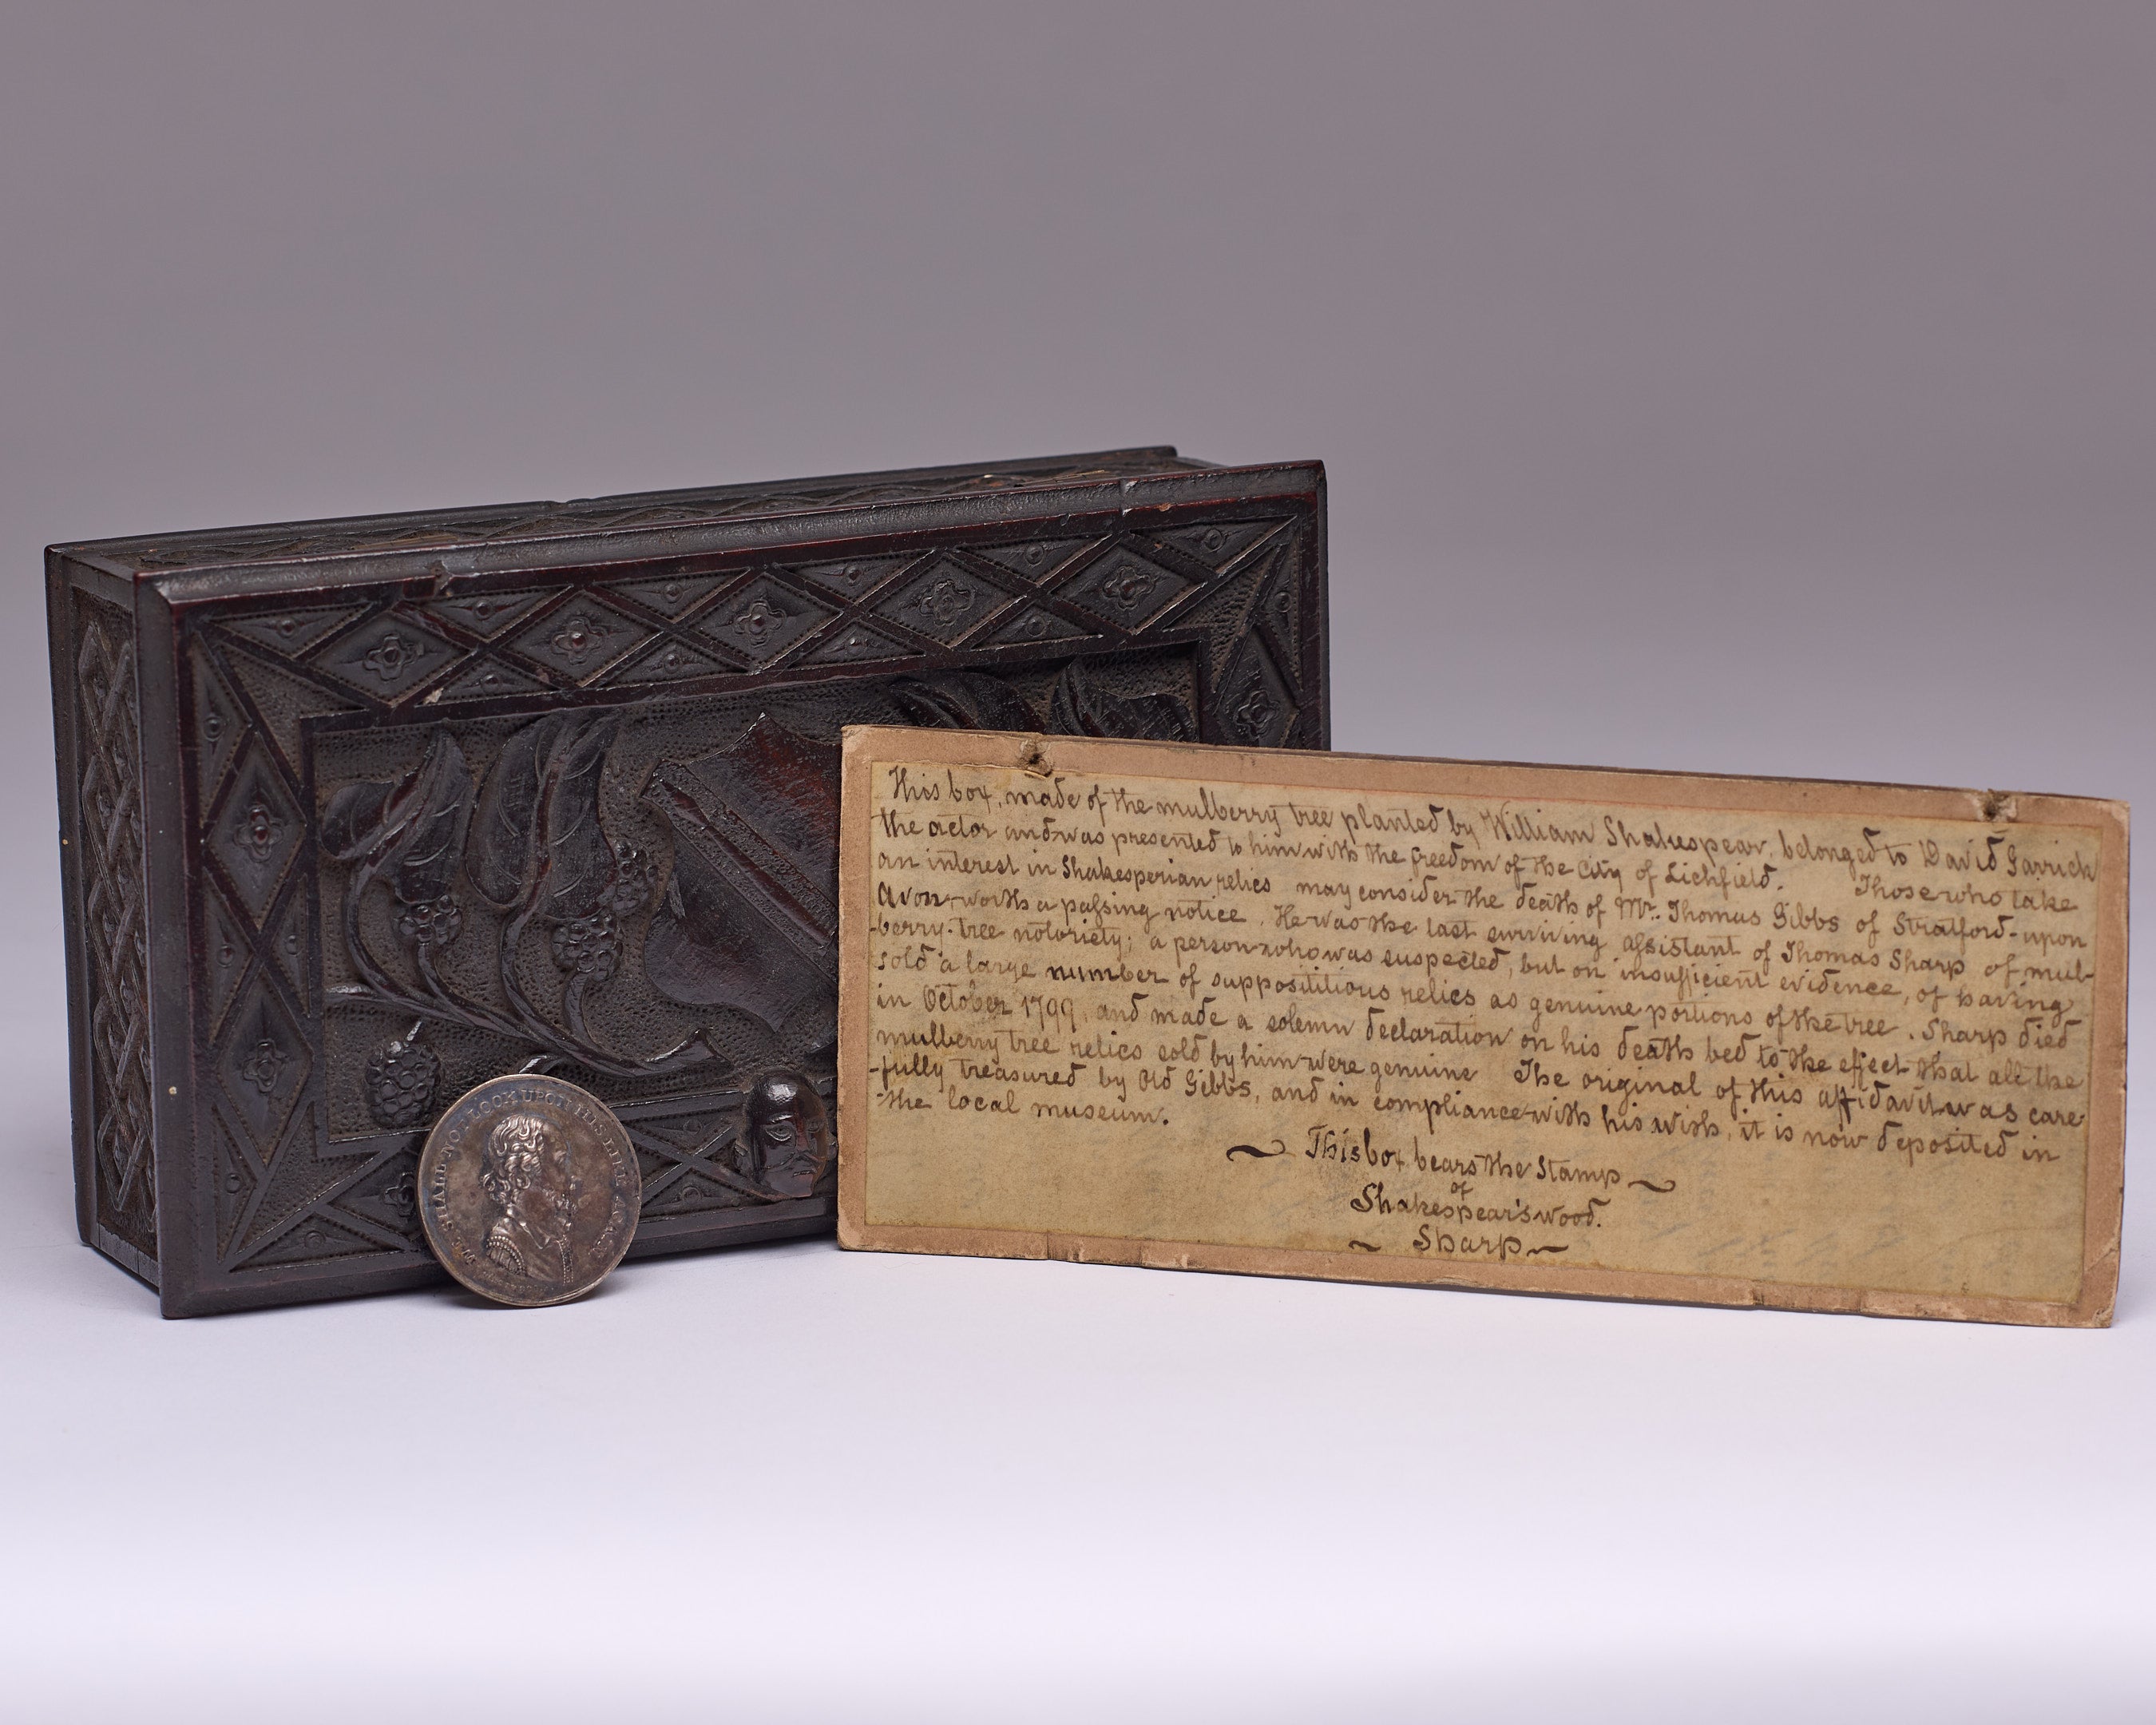 This box, made of the mulberry tree planted by William Shakespear, belonged to David Garrick
the actor and was presented to him with the freedom of the City of Lichfield. Those who take
an interest in Shakesperian relics may consider the death of Mr. Thomas Gibbs of Stratford-upon
Avon worth a passing notice. He was the last surviving assistant of Thomas Sharp of mul-
-berry-tree notoriety; a person who was suspected, but on insufficient evidence, of having
sold a large number of supposititious relics as genuine portions of the tree. Sharp died
in October 1799, and made a solemn declaration on his death bed to the effect that all the
mulberry tree relics sold by him were genuine The original of this affidavit was care-
-fully treasured by Old Gibbs, and in compliance with his wish, it is now deposited in
the local museum.
~ This box bears the Stamp ~
of
Shakespear's wood.
~ Sharp ~
WE SHALL NOT LOOK UPON HIS LIKE AGAIN